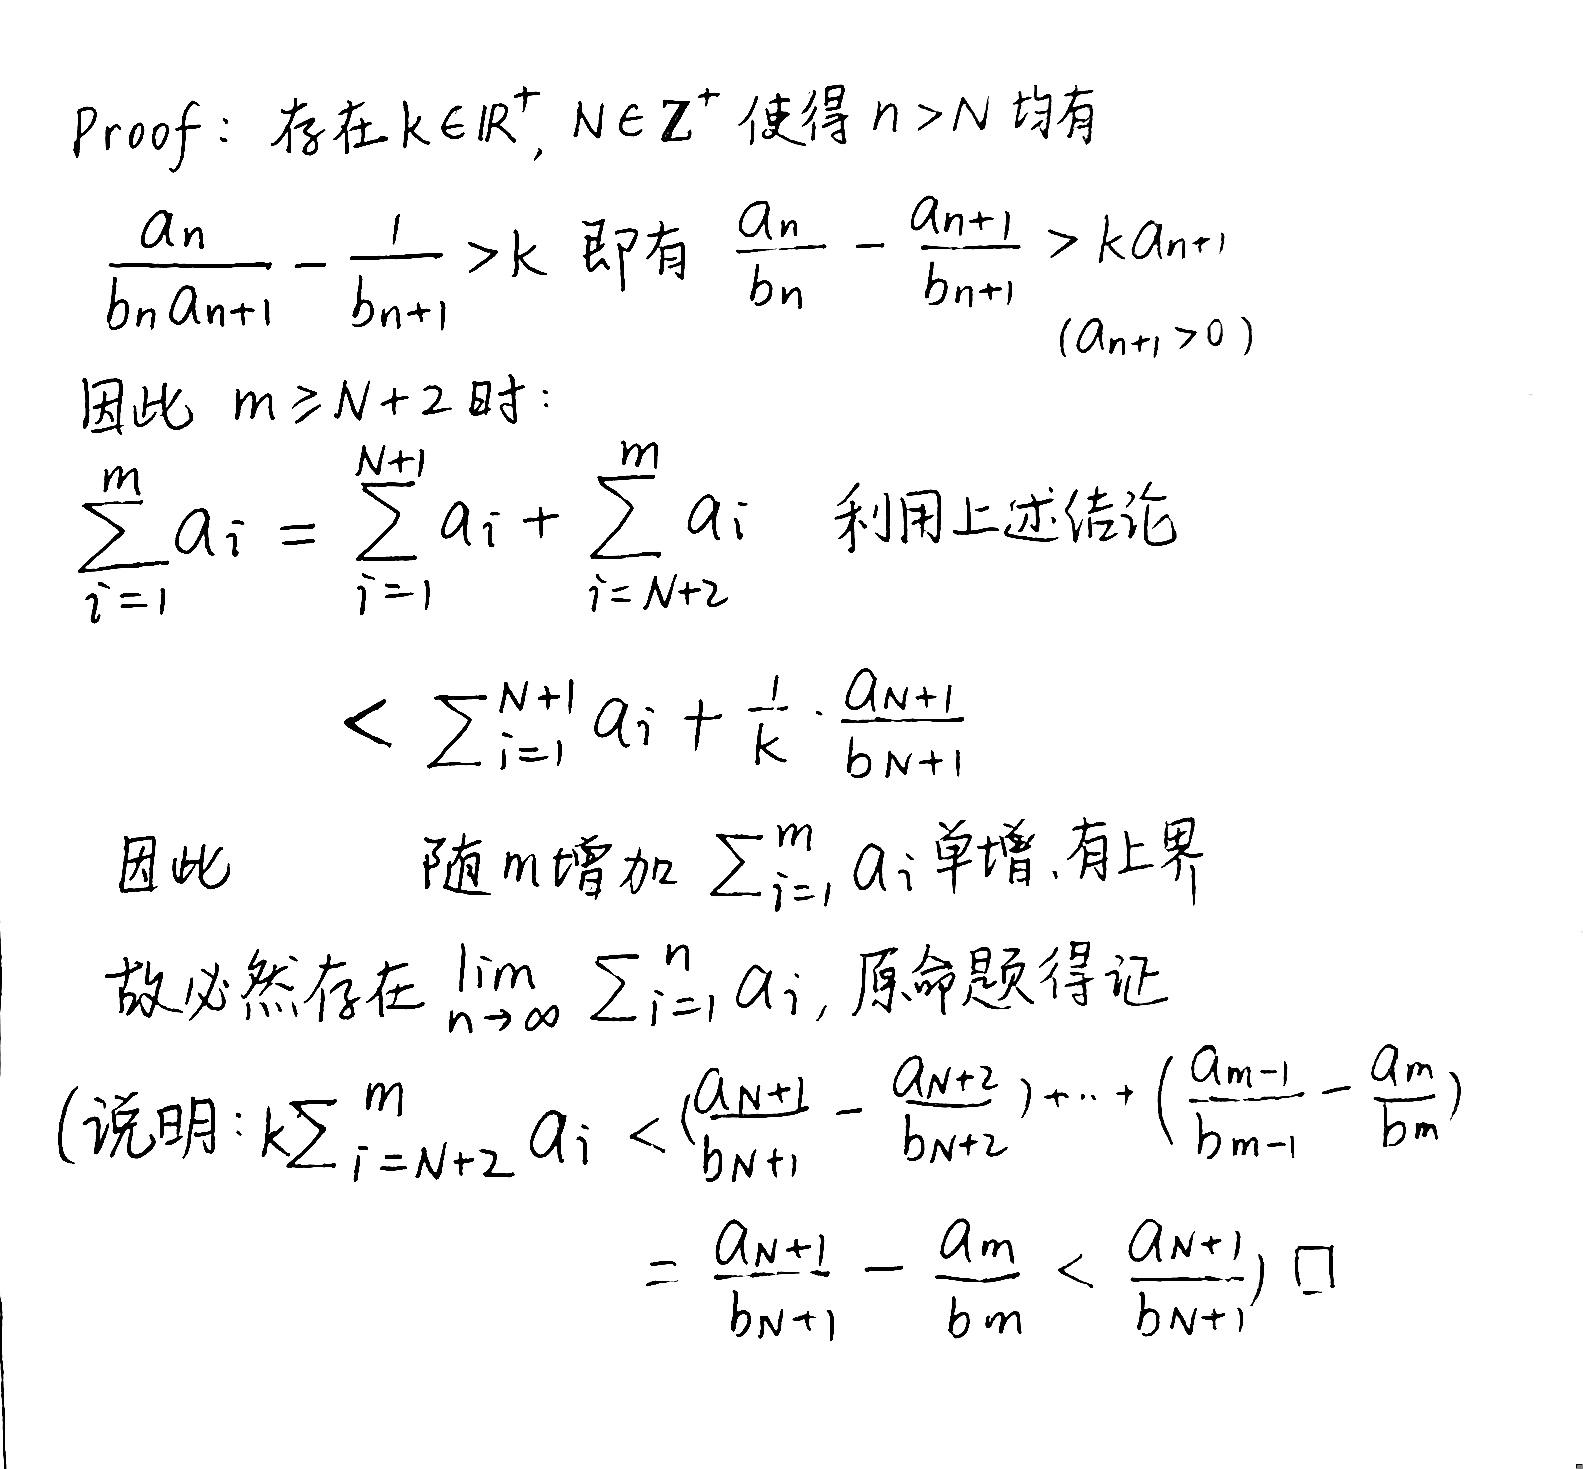 Proof: 存在 $k \in \mathbb{R}^+, N \in \mathbf{Z}^+$ 使得 $n > N$ 均有
$\frac{a_n}{b_n a_{n+1}} - \frac{1}{b_{n+1}} > k$ 即有 $\frac{a_n}{b_n} - \frac{a_{n+1}}{b_{n+1}} > k a_{n+1}$
$(a_{n+1} > 0)$
因此 $m \geq N+2$ 时:
$\sum_{i=1}^{m} a_i = \sum_{i=1}^{N+1} a_i + \sum_{i=N+2}^{m} a_i$ 利用上述结论
$< \sum_{i=1}^{N+1} a_i + \frac{1}{k} \cdot \frac{a_{N+1}}{b_{N+1}}$
因此 随 m 增加 $\sum_{i=1}^{m} a_i$ 单增、有上界
故必然存在 $\lim_{n \to \infty} \sum_{i=1}^{n} a_i$, 原命题得证
(说明: $k \sum_{i=N+2}^{m} a_i < (\frac{a_{N+1}}{b_{N+1}} - \frac{a_{N+2}}{b_{N+2}}) + \cdots + (\frac{a_{m-1}}{b_{m-1}} - \frac{a_m}{b_m})$
$= \frac{a_{N+1}}{b_{N+1}} - \frac{a_m}{b_m} < \frac{a_{N+1}}{b_{N+1}})$ □